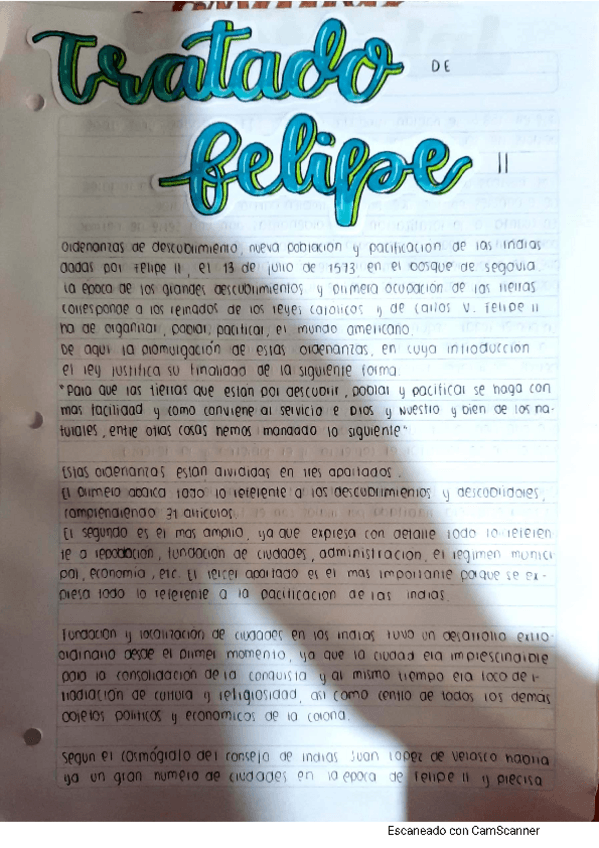 Tratado DE
felipe II
Ordenanzas de descubrimiento, nueva poblacion y pacificacion de las indias
dadas por Felipe II, el 13 de julio de 1573 en el bosque de segovia.
La epoca de los grandes descubrimientos y primera ocupacion de las tierras
corresponde a los reinados de los reyes catolicos y de carlos V. Felipe II
ha de organizar, poblar, pacificar, el mundo americano.
De aqui la promulgación de estas ordenanzas, en cuya introduccion
el rey justifica su finalidad de la siguiente forma.
"Para que las tierras que estan por descubrir, poblar y pacificar se haga con
mas facilidad y como conviene al servicio e Dios y Nuestro y bien de los na-
turales, entre otras cosas hemos mandado lo siguiente"
Estas ordenanzas estan divididas en tres apartados.
El primero abarca todo lo referente a los descubrimientos y descubridores,
comprendiendo 31 articulos.
El segundo es el mas amplio, ya que expresa con detalle todo lo referen
te a repoblacion, fundacion de ciudades, administracion, el regimen munici
pal, economia, etc. El tercer apartado es el mas importante porque se ex-
presa todo lo referente a la pacificacion de las indias.
Fundacion y localización de ciudades en los indios tuvo un desarrollo extra
ordinario desde el primer momento, ya que la ciudad era imprescindible
para la consolidacion de la conquista y al mismo tiempo era foco de i-
rradiacion de cultura y religiosidad, asi como centro de todos los demas
objetos politicos y economicos de la corona.
Segun el cosmógrafo del consejo de indias Juan Lopez de velasco habria
ya un gran numero de ciudades en la epoca de Felipe II y precisa
Escaneado con CamScanner